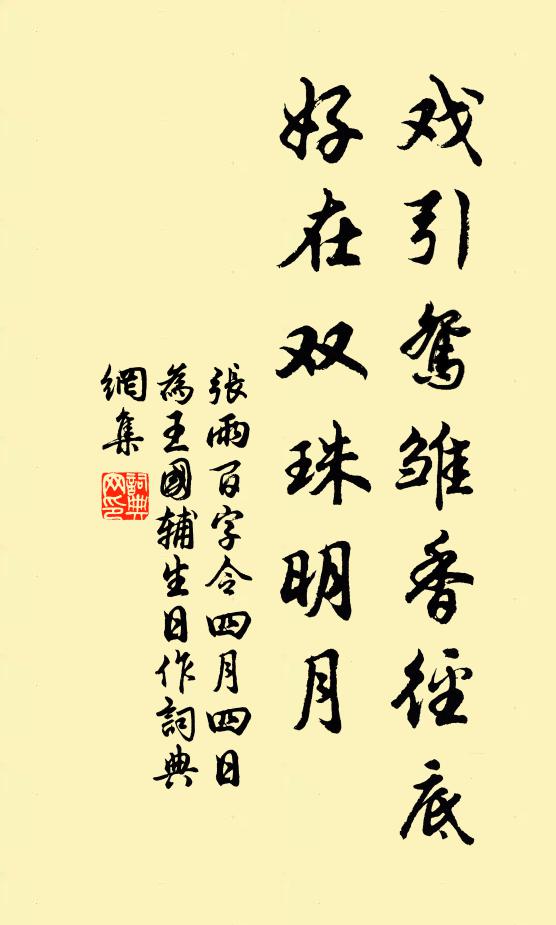 戏引鸳雏香径底
好在双珠明月
張雨百字令四月四日
為王國辅生日作詞典
網集
詞典网印